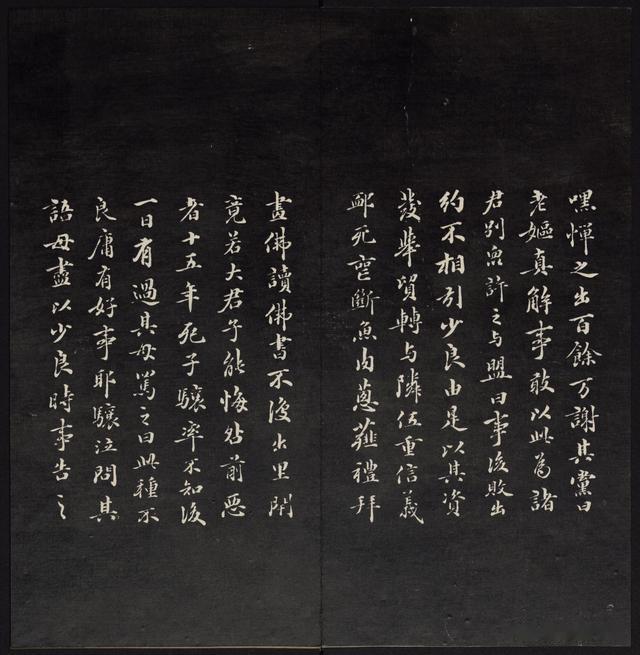 嘿惮之出百餘万謝其黨曰
老嫗真解事敢以此為諸
君别衆許之与盟曰事後敗出
約不相引少良由是以其資
發舉貿轉与隣伍重信義
卹死喪斷魚肉葱薤禮拜
畫佛讀佛書不復出里閈
竟若大君子能悔咎前惡
者十五年死子驤率不知後
一日有過其母罵之曰此種不
良庸有好事耶驤泣問其
語母盡以少良時事告之